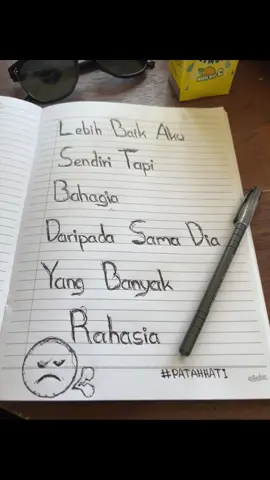 Lebih Baik Aku
Sendiri Tapi
Bahagia
Daripada Sama Dia
Yang Banyak
Rahasia
#PATAHHATI